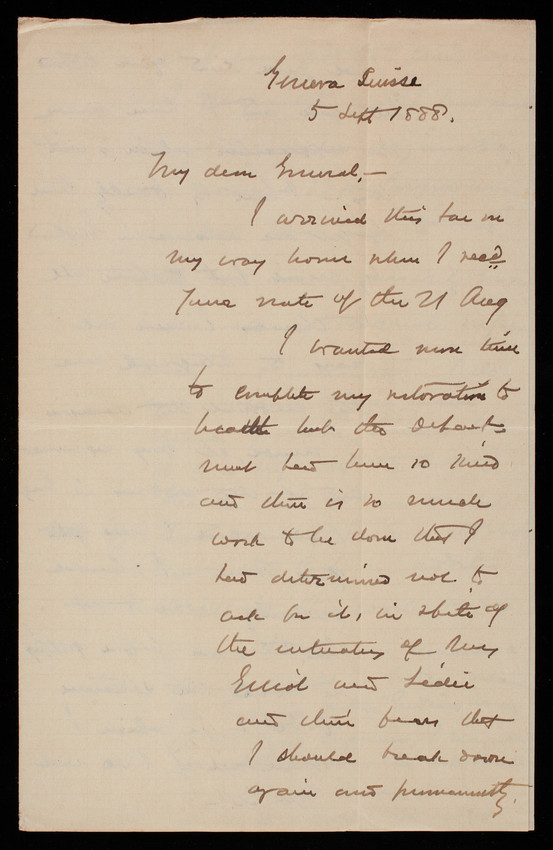 Geneva Suisse
5 Sept 1888.
My dear General,—
I arrived this far on
my way home when I recd
your note of the 21 Aug
I wanted more time
to complete my restoration to
health but the Depart-
ment had been so kind
and there is so much
work to be done that I
had determined not to
ask for it, in spite of
the entreaties of Mrs
and
and their fears that
I should break down
again and permanently.